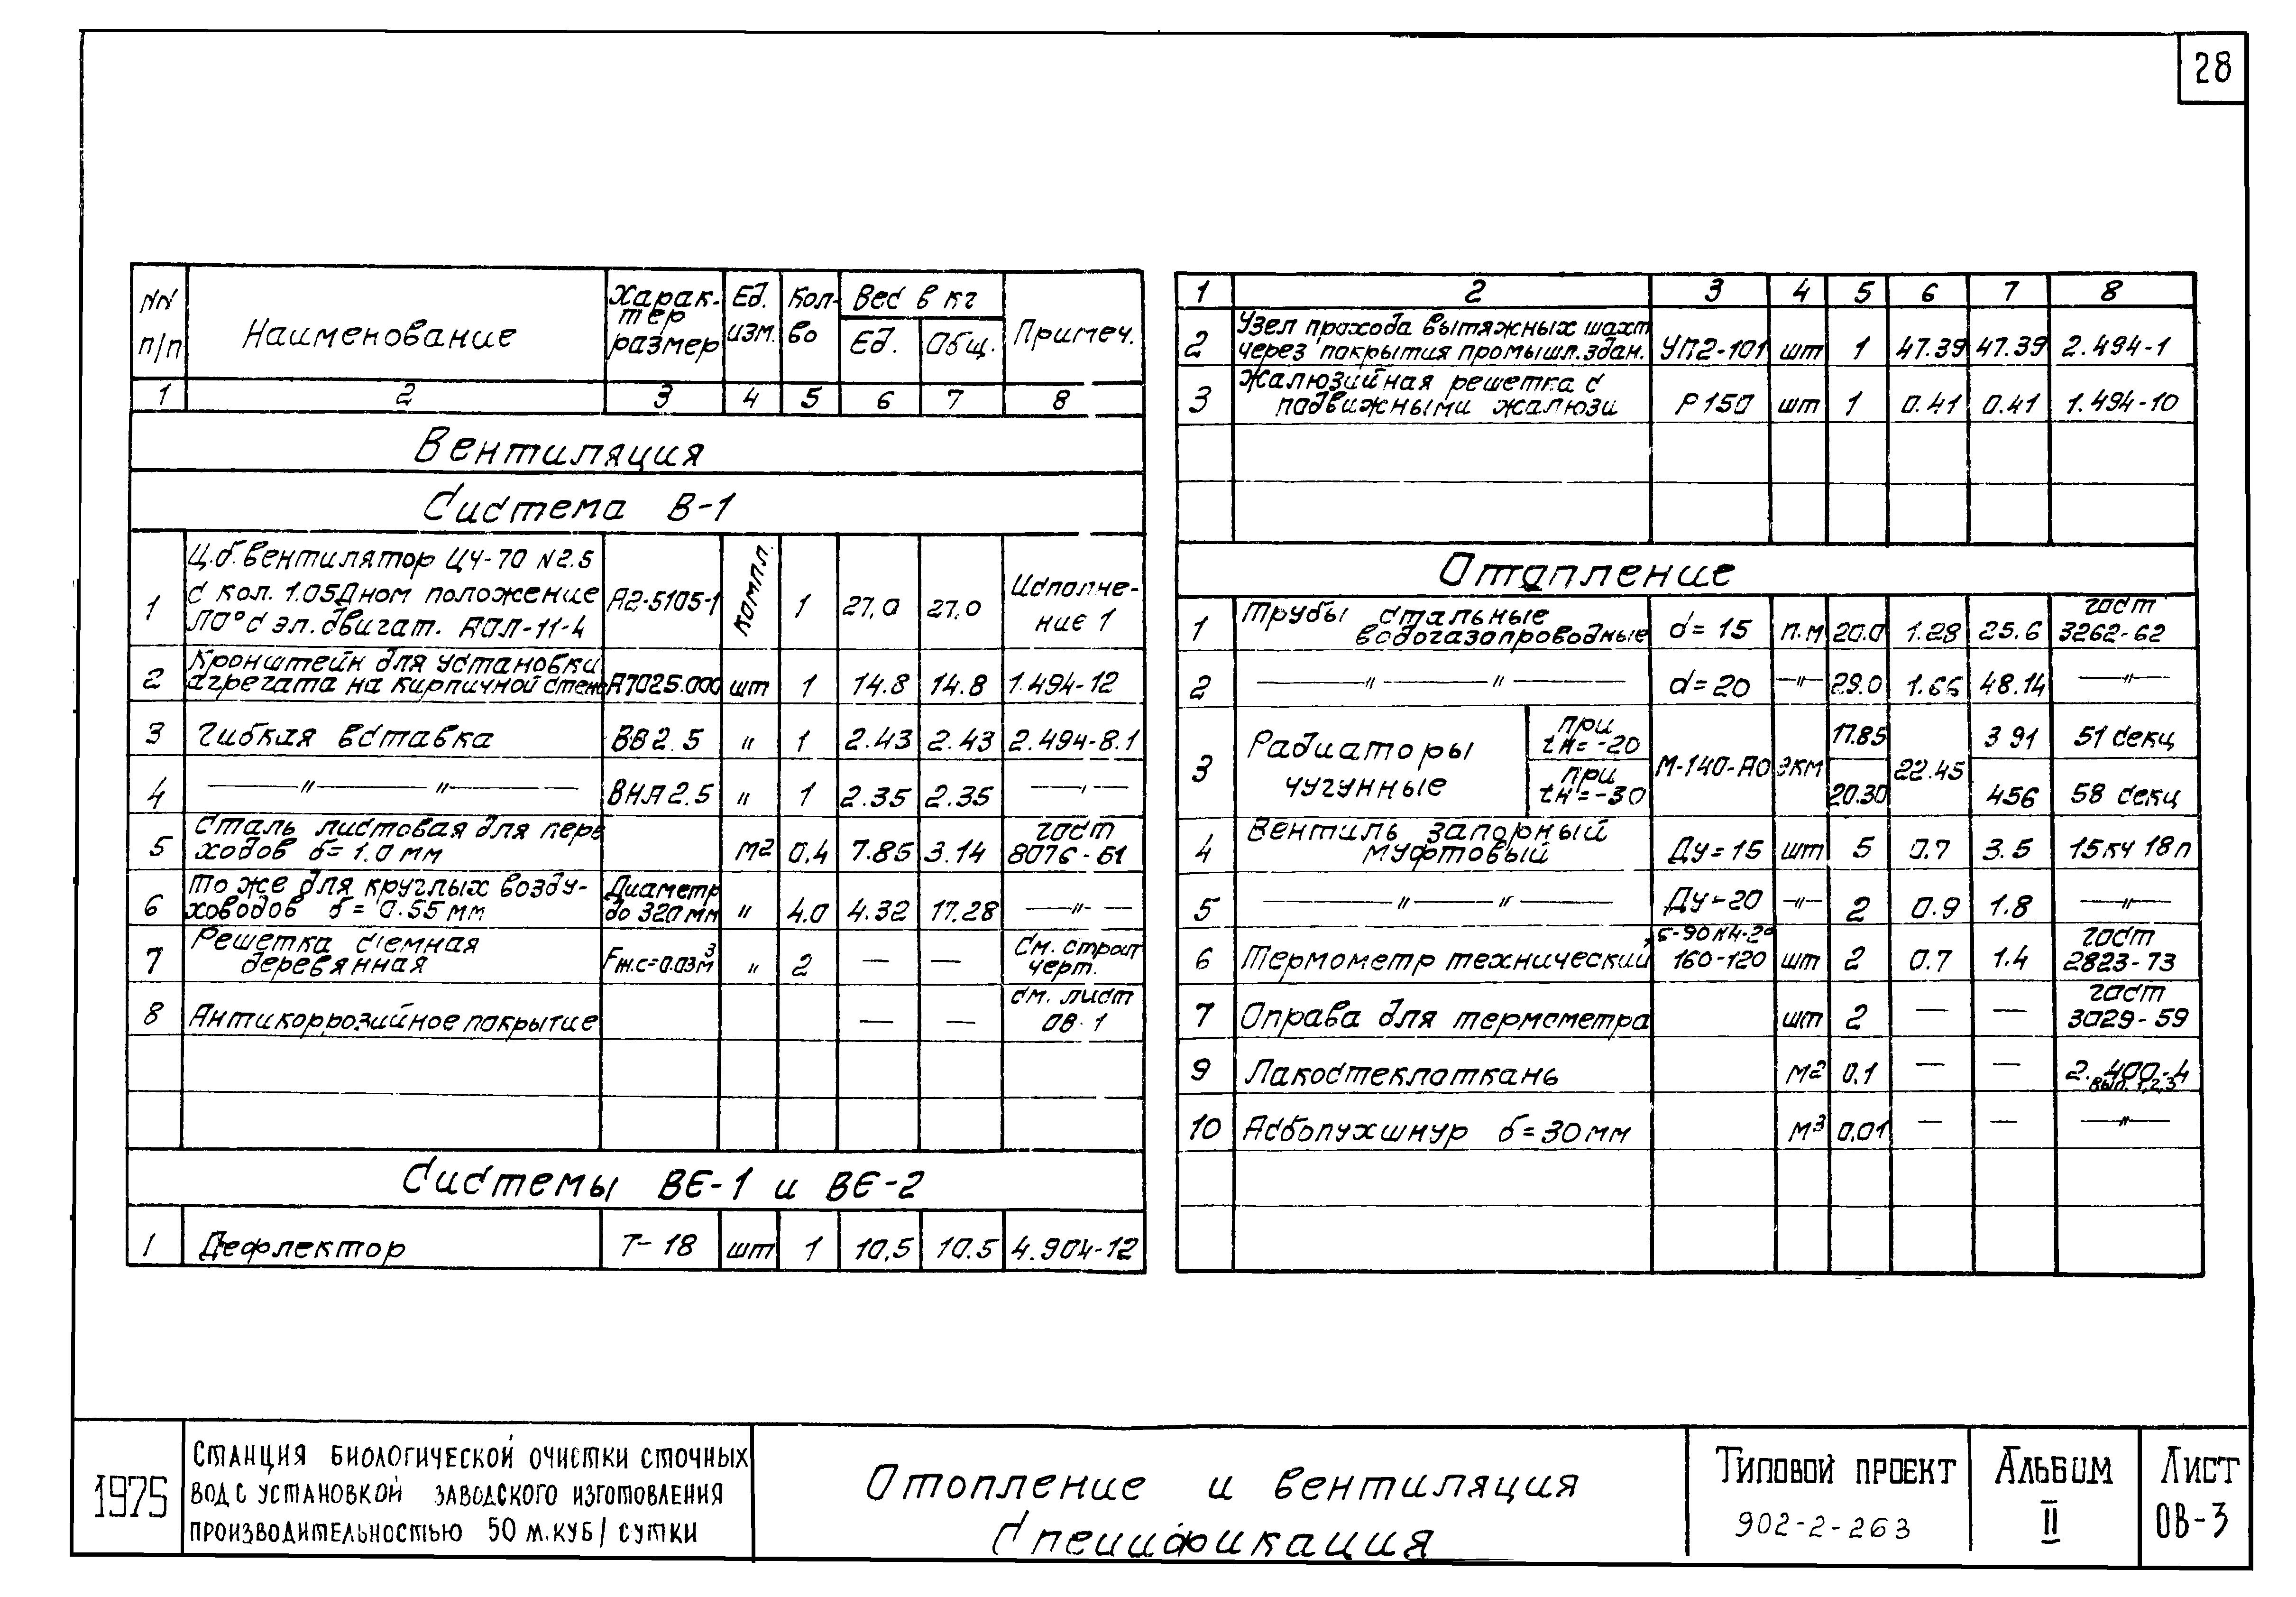 28
NN п/п Наименование Харак-тер размер Ед. изм. Кол-во Вес в кг Ед. Общ. Примеч.
1 2 3 4 5 6 7 8
Вентиляция
Система В-1
1 Ц.б. вентилятор Ц4-70 N2.5
с кол. 1.05Дном положение
Л0° с эл. двигат. АОЛ-11-4 А2-5105-1 компл. 1 27.0 27.0 Исполне-ние 1
2 Кронштейн для установки
агрегата на кирпичной стене А7025.000 шт 1 14.8 14.8 1.494-12
3 Гибкая вставка ВВ 2.5 " 1 2.43 2.43 2.494-8.1
4 —"— —"— ВНА 2.5 " 1 2.35 2.35 —"—
5 Сталь листовая для пере
ходов б= 1.0 мм м2 0.4 7.85 3.14 гост 8076-61
6 То же для круглых возду-
ховодов б= 0.55 мм Диаметр до 320 мм " 4.0 4.32 17.28 —"—
7 Решетка с'емная
деревянная Fж.с=0.03м3 " 2 — — См. строит черт.
8 Антикоррозийное покрытие — — см. лист ОВ-1
Системы ВЕ-1 и ВЕ-2
1 Дефлектор Т-18 шт 1 10.5 10.5 4.904-12
1 2 3 4 5 6 7 8
2 Узел прохода вытяжных шахт
через покрытия промышл. здан. УП2-101 шт 1 47.39 47.39 2.494-1
3 Жалюзийная решетка с
подвижными жалюзи Р150 шт 1 0.41 0.41 1.494-10
Отопление
1 Трубы стальные
водогазопроводные d=15 п.м 20.0 1.28 25.6 гост 3262-62
2 —"— —"— d=20 —"— 29.0 1.66 48.14 —"—
3 Радиаторы
чугунные при tн=-20 М-140-АО экм 17.85 22.45 391 51 секц
при tн=-30 20.30 456 58 секц
4 Вентиль запорный
муфтовый Ду=15 шт 5 0.7 3.5 15кч 18п
5 —"— —"— Ду-20 —"— 2 0.9 1.8 —"—
6 Термометр технический 160-120 шт 2 0.7 1.4 гост 2823-73
7 Оправа для термометра шт 2 — — гост 3029-59
9 Лакостеклоткань м2 0.1 — — 2.400-4 вып. 1,2,3
10 Асбопухшнур б=30мм м3 0.01 — — —"—
1975
Станция биологической очистки сточных
вод с установкой заводского изготовления
производительностью 50 м.куб/ сутки
Отопление и вентиляция
Спецификация
Типовой проект
902-2-263
Альбом
II
Лист
ОВ-3